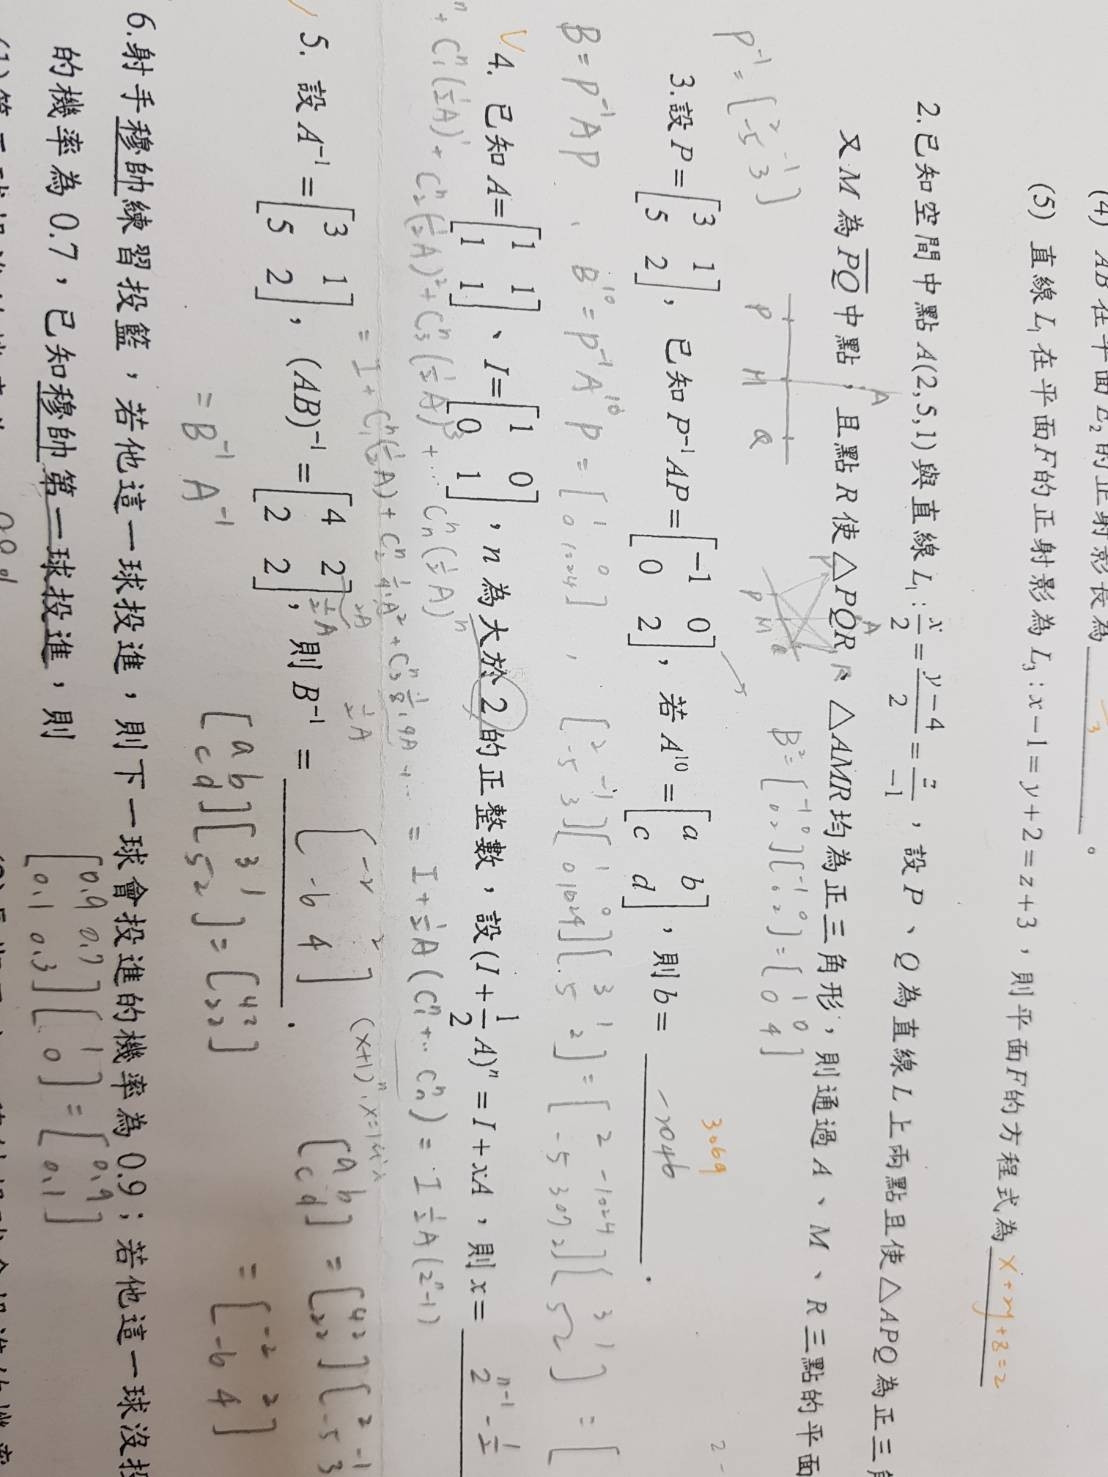 (4) AB在平面E₂的正射影長為
(5) 直線L₁在平面F的正射影為L₃:x-1=y+2=z+3，則平面F的方程式為 x+2y+z=2
2.已知空間中點A(2,5,1)與直線L₁:x/2=(y-4)/2=z/-1，設P、Q為直線L上兩點且使△APQ為正三
又M為PQ中點；且點R使△PQR、△AMR均為正三角形，則通過A、M、R三點的平面
P M Q A
B²=[-1 0 0 2][-1 0 0 2]=[1 0 0 4]
P⁻¹=[2 -1 -5 3]
3.設P=[3 1 5 2]，已知P⁻¹AP=[-1 0 0 2]，若A¹⁰=[a b c d]，則b= -2046 .
3069
B=P⁻¹AP、B¹⁰=P⁻¹A¹⁰P=[1 0 0 1024]，[2 -1 -5 3][1 0 0 1024][3 1 5 2]=[2 -1024 -5 3072][3 1 5 2]=[
4.已知A=[1 1 1 1]、I=[1 0 0 1]，n為大於2的正整數，設(I+1/2A)ⁿ=I+xA，則x= 2ⁿ⁻¹-1/2
+C₁ⁿ(1/2A)¹+C₂ⁿ(1/2A)²+C₃ⁿ(1/2A)³+…Cₙⁿ(1/2A)ⁿ
=I+C₁ⁿ(1/2A)+C₂ⁿ1/4A²+C₃ⁿ1/8·4A+… =I+1/2A(C₁ⁿ+..Cₙⁿ)=I 1/2A(2ⁿ-1)
5. 設A⁻¹=[3 1 5 2]，(AB)⁻¹=[4 2 2 2]，則B⁻¹= [-2 2 -6 4] .
=B⁻¹A⁻¹
[a b c d][3 1 5 2]=[4 2 2 2]
[a b c d]=[4 2 2 2][2 -1 -5 3]
=[-2 2 -6 4]
6.射手穆帥練習投籃，若他這一球投進，則下一球會投進的機率為0.9；若他這一球沒投
的機率為0.7，已知穆帥第一球投進，則
[0.9 0.7 0.1 0.3][1 0]=[0.9 0.1]